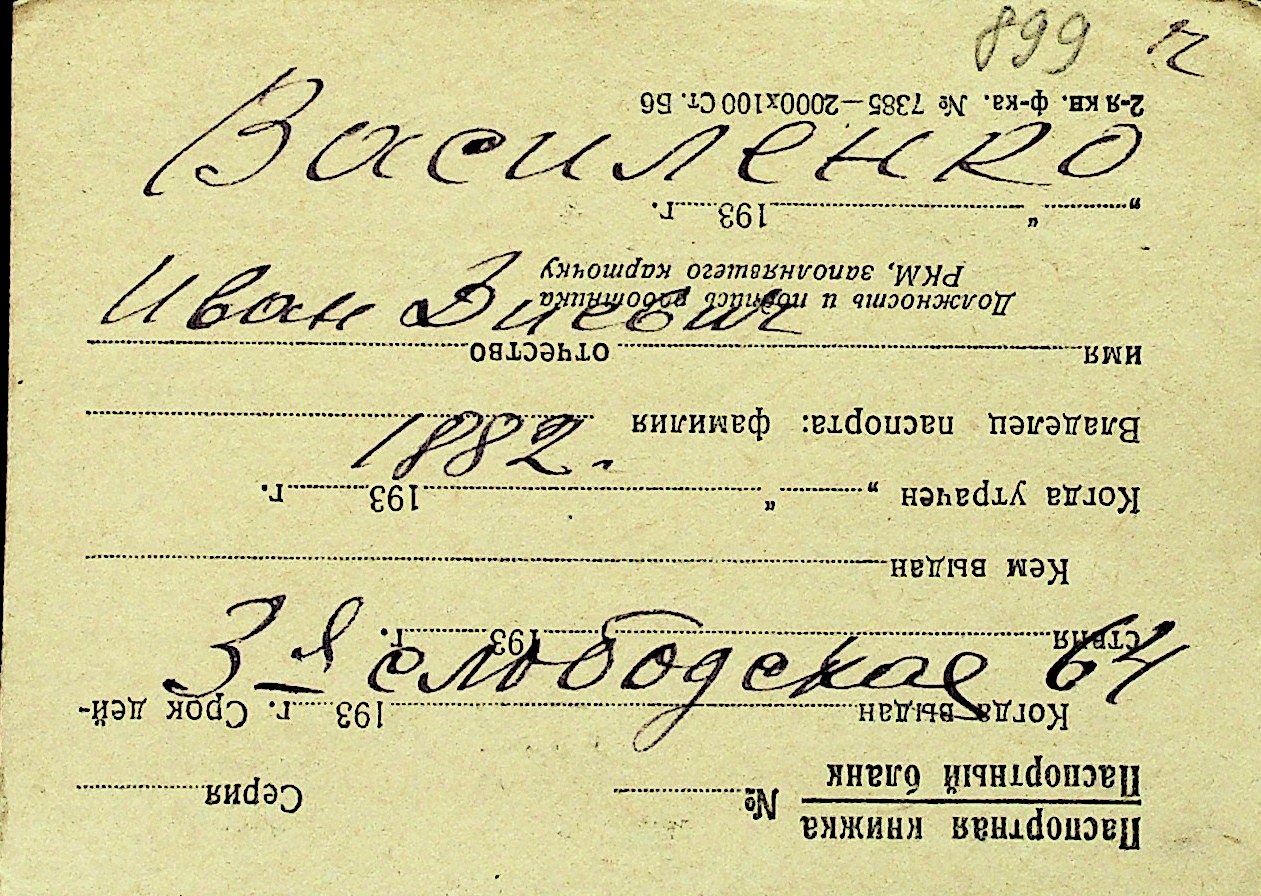 899
Василенко
Иван Зиевич
1882.
3-я слободская 64
Паспортная книжка
Паспортный бланк № Серия
Когда выдан 193 г. Срок дей-
ствия 193 г.
Кем выдан
Когда утрачен „ “ 193 г.
Владелец паспорта: фамилия
имя отчество
Должность и подпись работника
РКМ, заполнявшего карточку
„ “ 193 г.
2-я кн. ф-ка. № 7385—2000х100 Ст. Б6